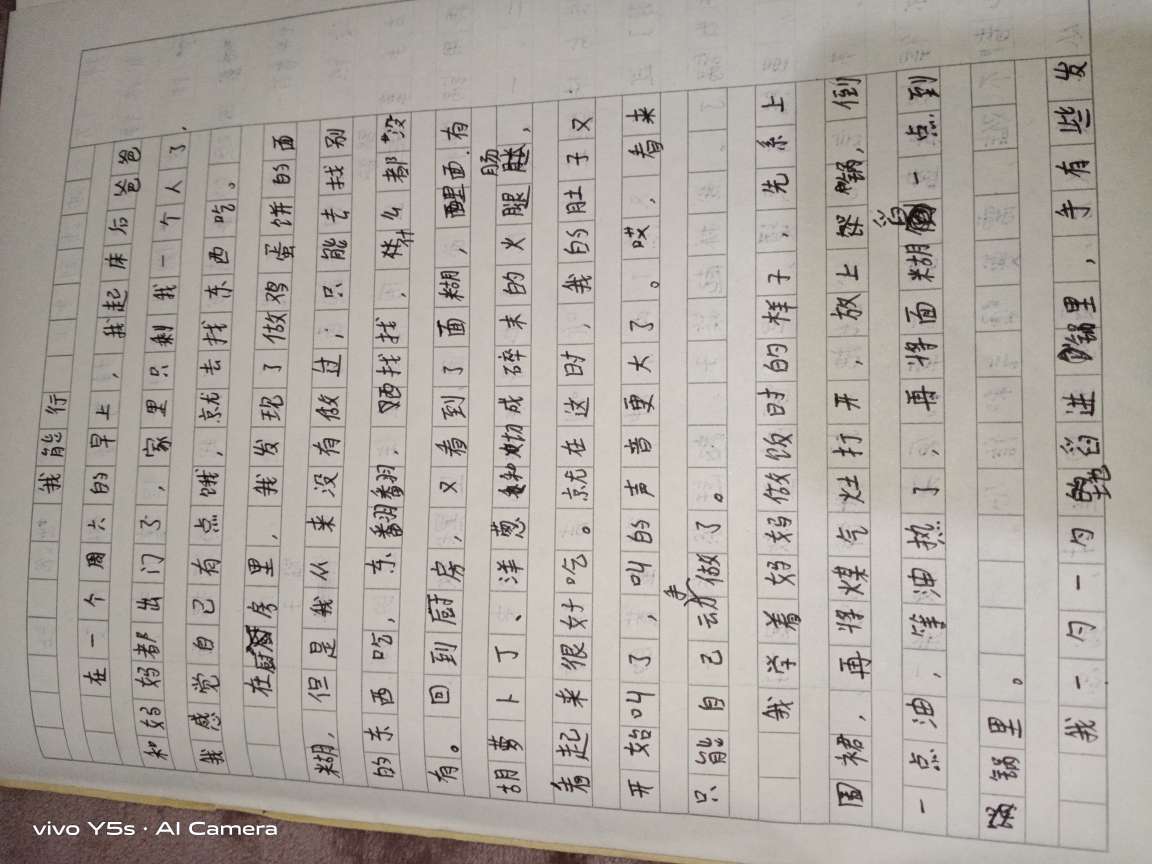 我能行
在一个周六的早上，我起床后爸爸
和妈妈都出门了，家里只剩我一个人了，
我感觉自己有点饿，就去找东西吃。
在厨房里，我发现了做鸡蛋饼的面
糊，但是我从来没有做过，只能去找别
的东西吃，东翻翻，西找找，什么都没
有。回到厨房，又看到了面糊，醒面.有
胡萝卜丁、洋葱和切成碎末的火腿肠，
看起来很好吃。就在这时，我的肚子又
开始叫了，叫的声音更大了。哎，看来
只能自己动手做了。
我学着妈妈做饭时的样子，先系上
围裙，再将煤气灶打开，放上锅，倒
一点油，等油热了，再将面糊舀一点到
锅里。
我一勺一勺地舀进锅里，手有些发
vivo Y5s · AI Camera